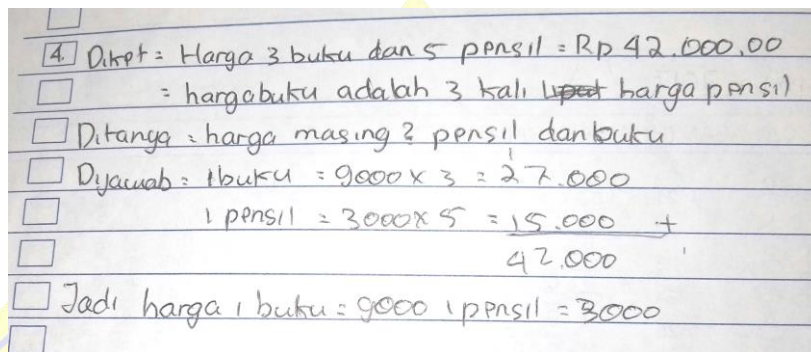 4. Diket = Harga 3 buku dan 5 pensil = Rp 42.000,00
= harga buku adalah 3 kali harga pensil
Ditanya = harga masing 2 pensil dan buku
Dijawab = 1 buku = 9000 x 3 = 27.000
1 pensil = 3000 x 5 = 15.000 +
42.000
Jadi harga 1 buku = 9000 1 pensil = 3000